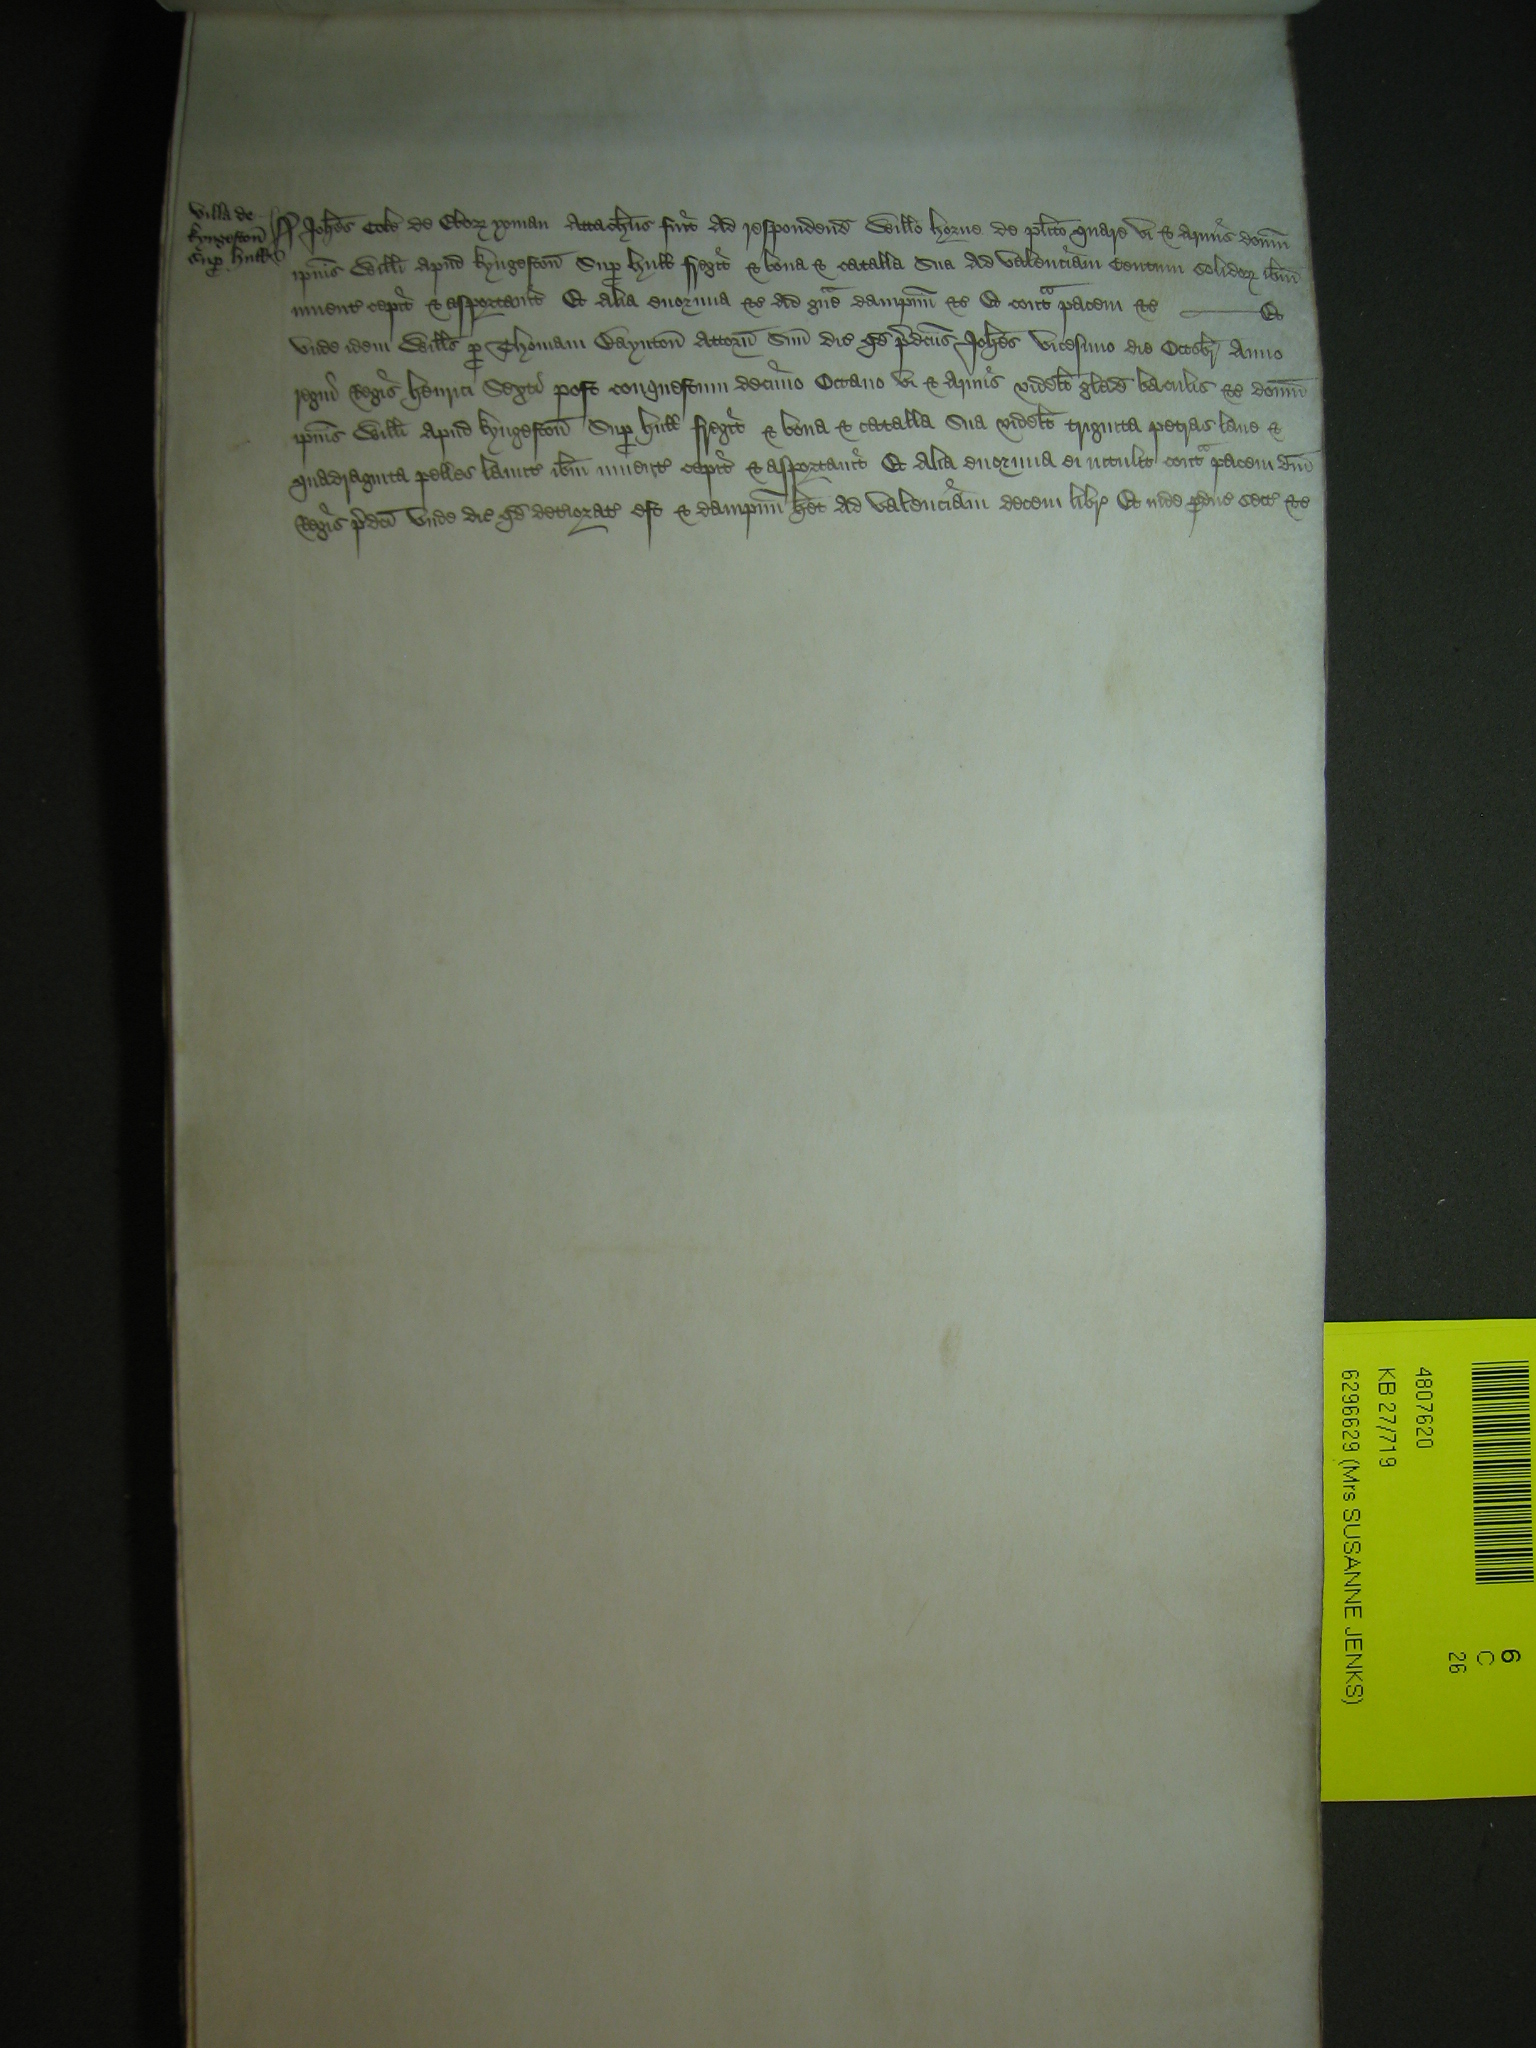 villa de
kyngeston̄
sup̱ hull
ss Joħes Cole de Eborꝝ yoman Attachiat̄s fuit Ad respondend̄ Willo horne de pl̄ito quare vi & armis domū
ip̄ius Willi apud kyngeston̄ Sup̱ hull fregit & bona & catalla sua Ad valenciam Centum solidorꝝ ibm̄
invent̄ cepit & asportavit Et alia enormia &c Ad gᵃve dampnū &c Et contᵃ pacem &c Et
vnde idem Wills p̱ Thomam Gaynton̄ Attorn̄ suū dic̄ qd̄ p̄dc̄us Joħes vicesimo die Octobr̄ Anno
regni Regis henrici Sexti post conquestum decimo octavo vi & armis videlt̄ glad̄ baculis &c domū
ip̄ius Willi apud kyngeston̄ Sup̱ hull fregit & bona & catalla sua videlt̄ triginta petras lane &
quadraginta pelles lanut̄ ibm̄ invent̄ cepit & asportavit Et alia enormia ei intulit contᵃ pacem dn̄i
Regis p̄dc̄i vnde dic̄ qd̄ deteriorat̄ est & dampnū het̄ Ad valenciam decem libr̄ Et inde p̱duc̄ sect̄ &c
4807620
KB 27/719
6296629 (Mrs SUSANNE JENKS)
6
C
26